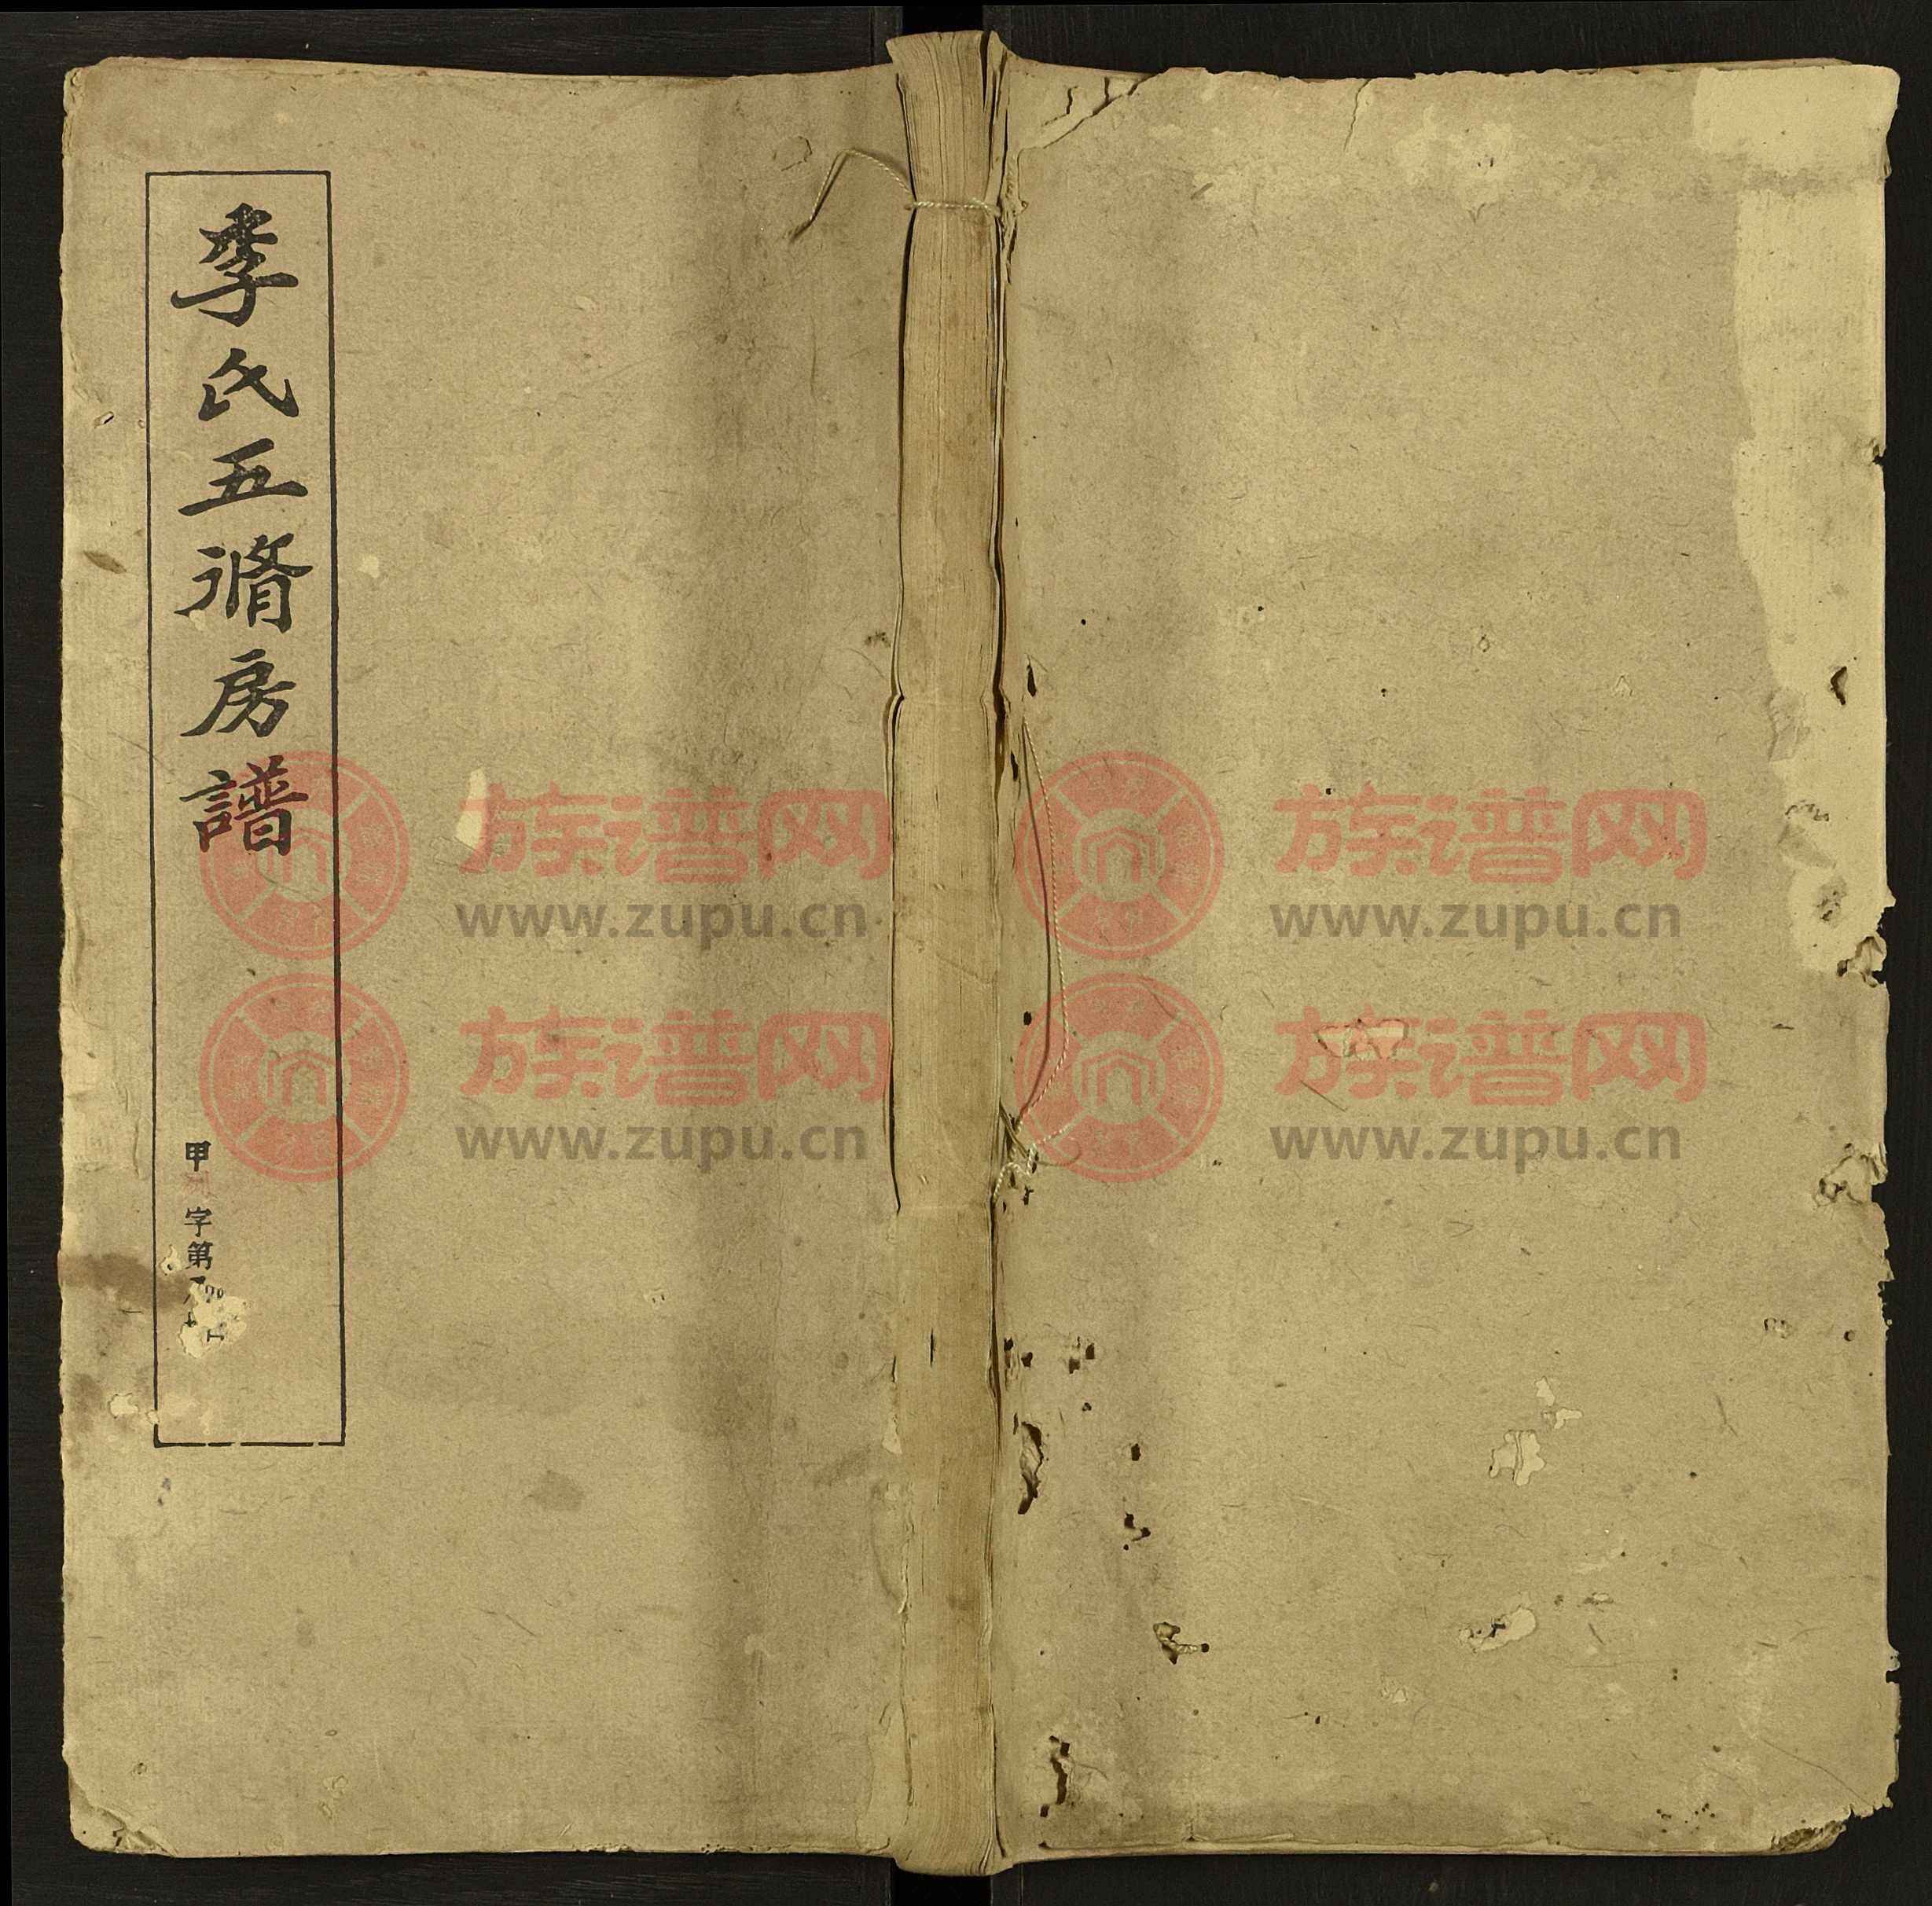 季氏五脩房譜
甲 字第
族谱网
www.zupu.cn
族谱网
www.zupu.cn
族谱网
www.zupu.cn
族谱网
www.zupu.cn